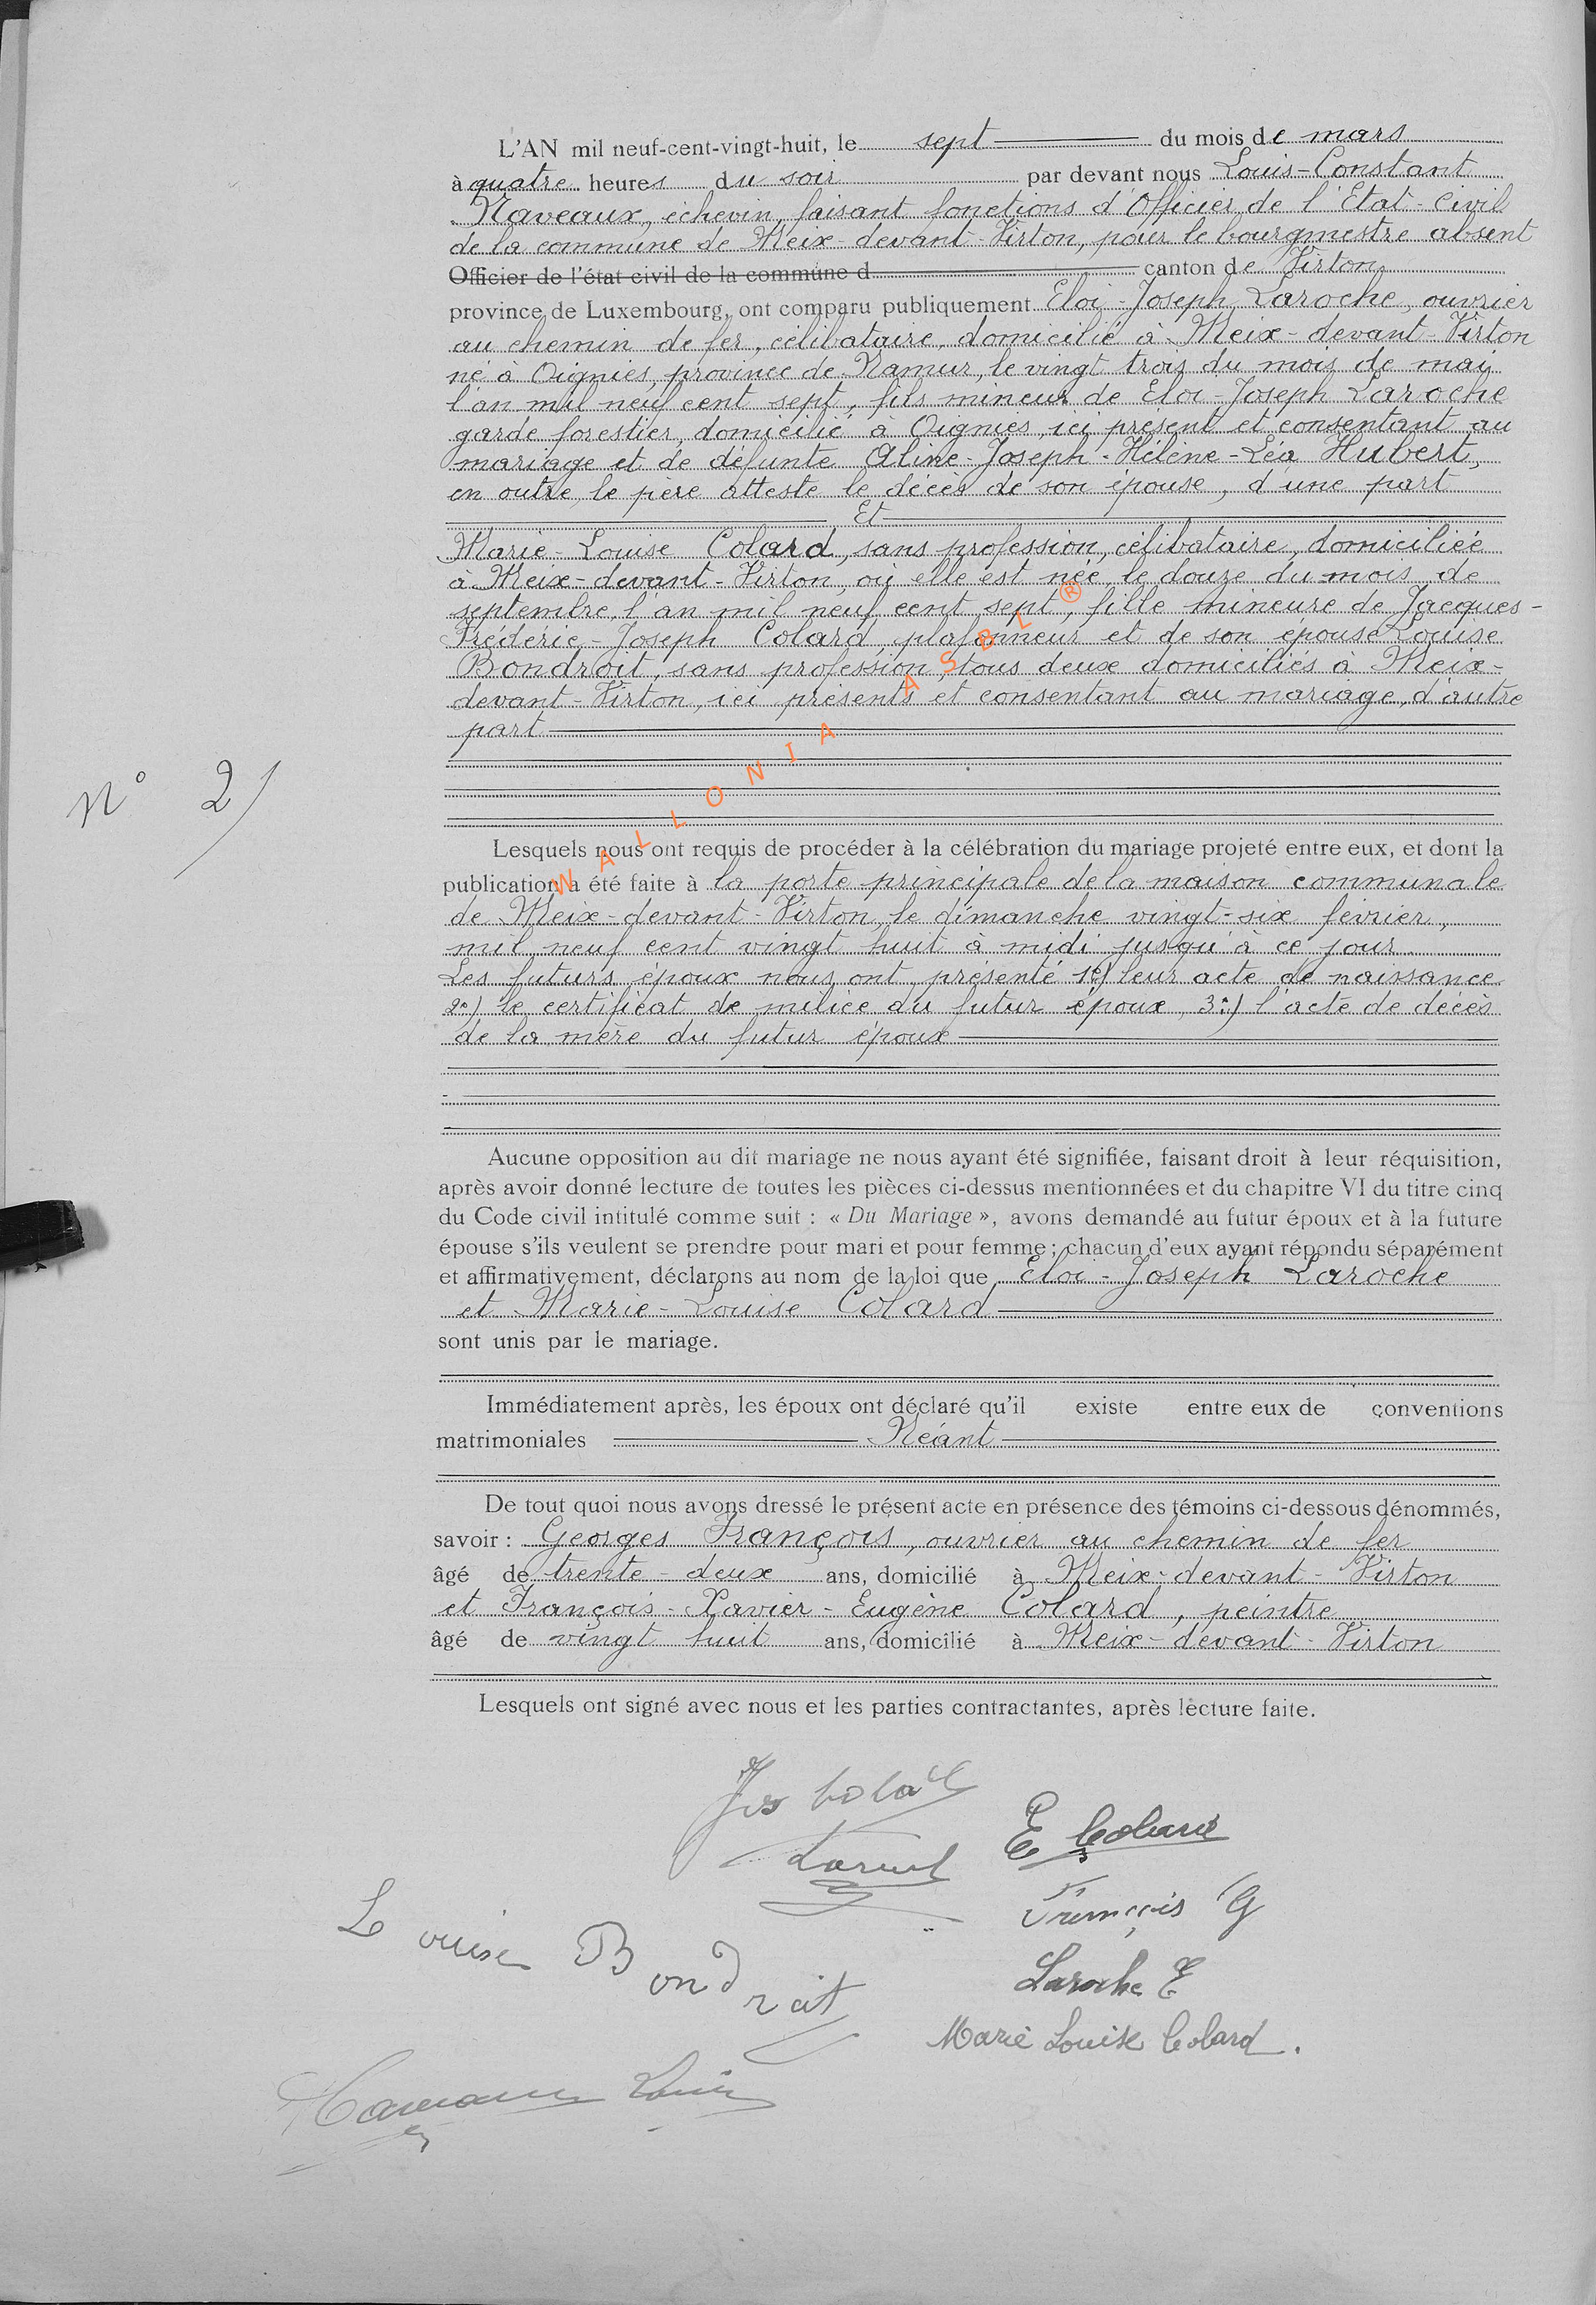 L'AN mil neuf-cent-vingt-huit, le sept du mois de mars
à quatre heures du soir par devant nous Louis-Constant
Naveaux, échevin, faisant fonctions d'Officier de l'Etat-Civil
de la commune de Meix-devant-Virton, pour le bourgmestre absent
Officier de l'état civil de la commune d canton de Virton
province de Luxembourg, ont comparu publiquement Eloi-Joseph Laroche, ouvrier
au chemin de fer, célibataire, domicilié à Meix-devant-Virton
né à Oignies, province de Namur, le vingt trois du mois de mai
l'an mil neuf cent sept, fils mineur de Eloi-Joseph Laroche
garde forestier, domicilié à Oignies, ici présent et consentant au
mariage et de défunte Aline-Joseph-Hélène-Léa Hubert,
en outre, le père atteste le décès de son épouse, d'une part
Et
Marie-Louise Colard, sans profession, célibataire, domiciliée
à Meix-devant-Virton, où elle est née, le douze du mois de
septembre, l'an mil neuf cent sept, fille mineure de Jacques-
Fréderic-Joseph Colard, plafonneur et de son épouse Louise
Bondroit, sans profession, tous deux domiciliés à Meix-
devant-Virton, ici présents et consentant au mariage, d'autre
part
N° 2
Lesquels nous ont requis de procéder à la célébration du mariage projeté entre eux, et dont la
publication a été faite à la porte principale de la maison communale
de Meix-devant-Virton, le dimanche vingt-six février,
mil neuf cent vingt huit à midi jusqu'à ce jour.
Les futurs époux nous ont présenté 1°) leur acte de naissance
2°) le certificat de milice du futur époux, 3°) l'acte de décès
de la mère du futur époux
Aucune opposition au dit mariage ne nous ayant été signifiée, faisant droit à leur réquisition,
après avoir donné lecture de toutes les pièces ci-dessus mentionnées et du chapitre VI du titre cinq
du Code civil intitulé comme suit : « Du Mariage », avons demandé au futur époux et à la future
épouse s'ils veulent se prendre pour mari et pour femme ; chacun d'eux ayant répondu séparément
et affirmativement, déclarons au nom de la loi que Eloi-Joseph Laroche
et Marie-Louise Colard
sont unis par le mariage.
Immédiatement après, les époux ont déclaré qu'il existe entre eux de conventions
matrimoniales Néant
De tout quoi nous avons dressé le présent acte en présence des témoins ci-dessous dénommés,
savoir : Georges François, ouvrier au chemin de fer
âgé de trente-deux ans, domicilié à Meix-devant-Virton
et François-Xavier-Eugène Colard, peintre
âgé de vingt huit ans, domicilié à Meix-devant-Virton
Lesquels ont signé avec nous et les parties contractantes, après lecture faite.
E Colard
François G
Louise Bondroit
Laroche E
Marie Louise Colard.
WALLONIA ASBL ®